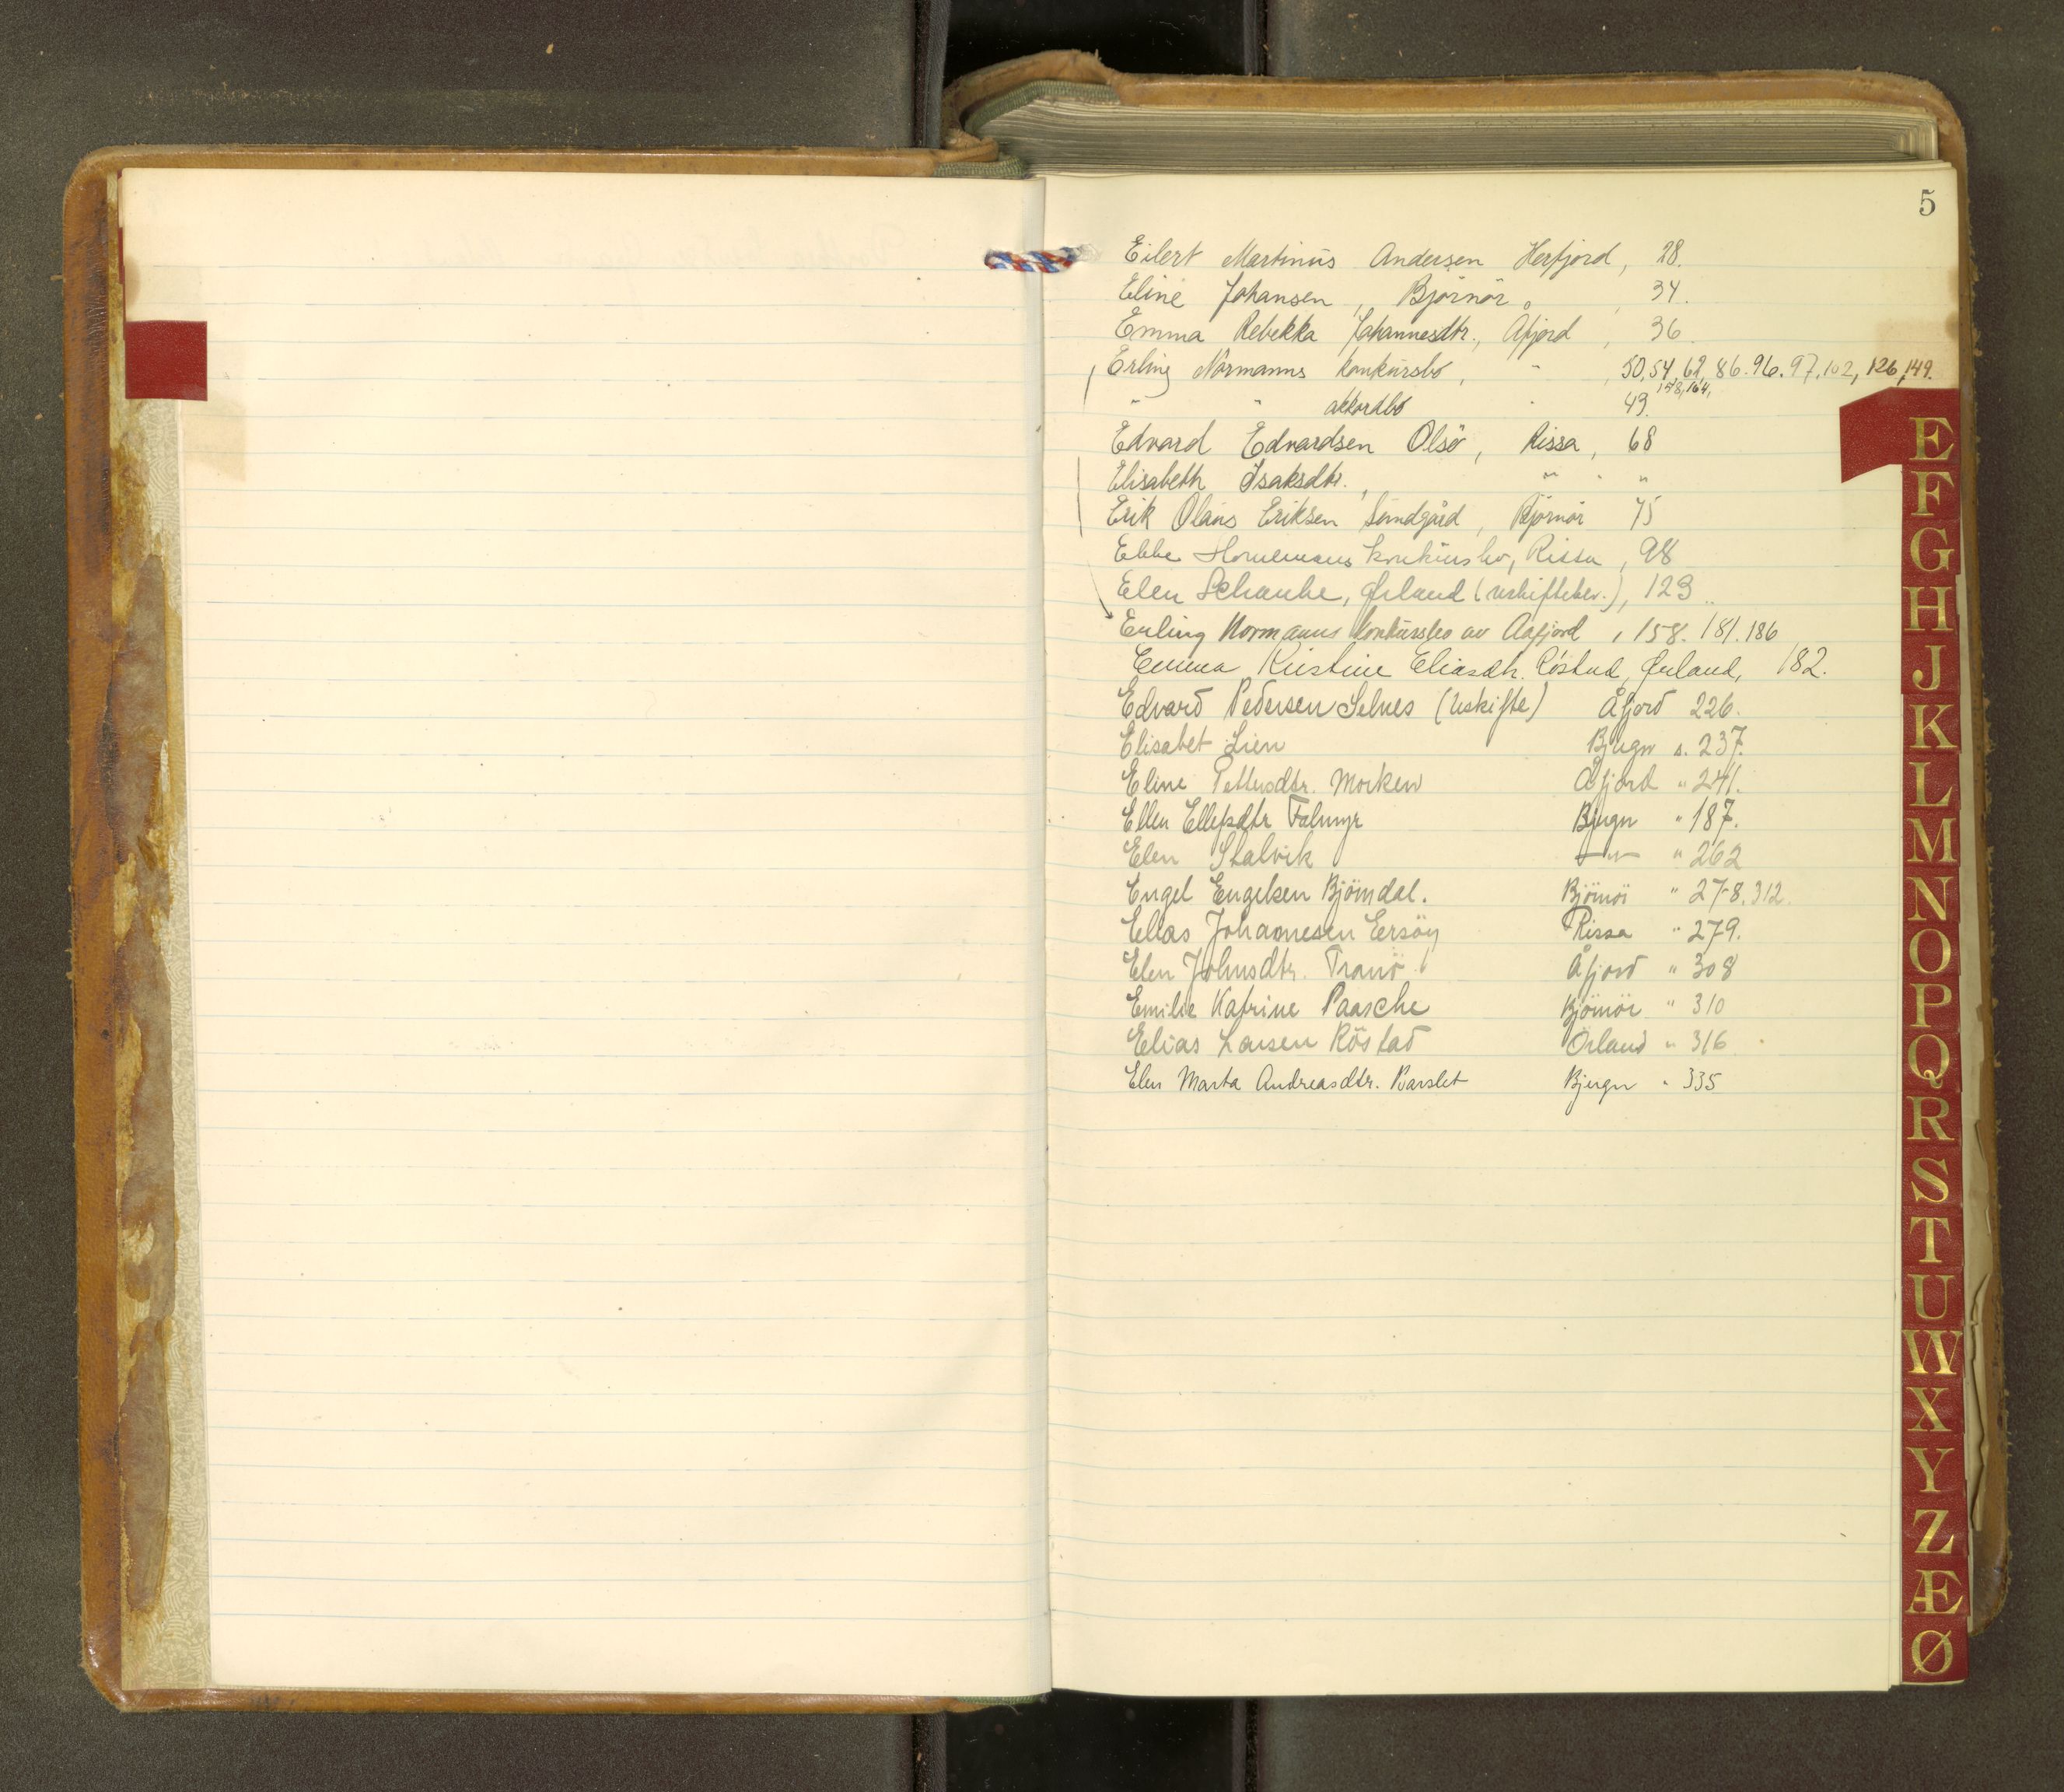 5
Eilert Martinus Andersen Herfjord, 28.
Eline Johansen, Bjørnør, 34.
Emma Rebekka Johannesdtr., Åfjord, 36
Erling Normanns konkursbo, " , 50, 54, 62, 86. 96. 97, 102, 126, 149.
158, 164,
" " akkordbo " 49.
Edvard Edvardsen Olsø, Rissa, 68
Elisabeth Isaksdtr., " " "
Erik Olaus Eriksen Sundgård, Bjørnør 75
Ebbe Hornemans konkursbo, Rissa, 98
Elen Schanke, Ørland (uskiftebev.), 123
Erling Normanns konkursbo av Aafjord, 158. 181. 186
Emma Kristine Eliasdtr. Røstad, Ørland, 182.
Edvard Pedersen Selnes (uskifte) Åfjord 226.
Elisabet Lien Bjugn s. 237.
Eline Pettersdtr. Morken Åfjord " 241.
Ellen Ellefsdtr Falmyr Bjugn " 187.
Elen Stalvik —"— " 262
Engel Engelsen Bjørndal. Bjørnør " 278. 312.
Elias Johannesen Ersøy Rissa " 279.
Elen Johnsdtr. Tranø Åfjord " 308
Emilie Katrine Paasche Bjørnør " 310
Elias Larsen Röstad Örland " 316
Elen Marta Andreasdtr. Barslet Bjugn " 335
E
F
G
H
J
K
L
M
N
O
P
Q
R
S
T
U
W
X
Y
Z
Æ
Ø